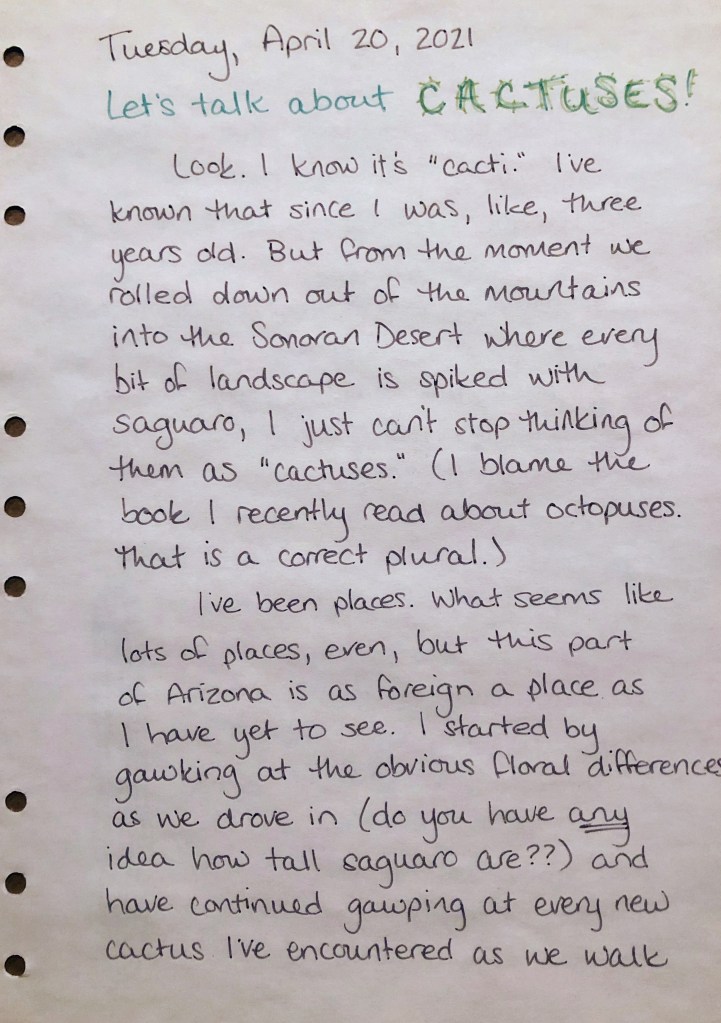 Tuesday, April 20, 2021
Let's talk about CACTUSES!
Look. I know it's "cacti." I've
known that since I was, like, three
years old. But from the moment we
rolled down out of the mountains
into the Sonoran Desert where every
bit of landscape is spiked with
saguaro, I just can't stop thinking of
them as "cactuses." (I blame the
book I recently read about octopuses.
That is a correct plural.)
I've been places. What seems like
lots of places, even, but this part
of Arizona is as foreign a place as
I have yet to see. I started by
gawking at the obvious floral differences
as we drove in (do you have any
idea how tall saguaro are??) and
have continued gawping at every new
cactus I've encountered as we walk